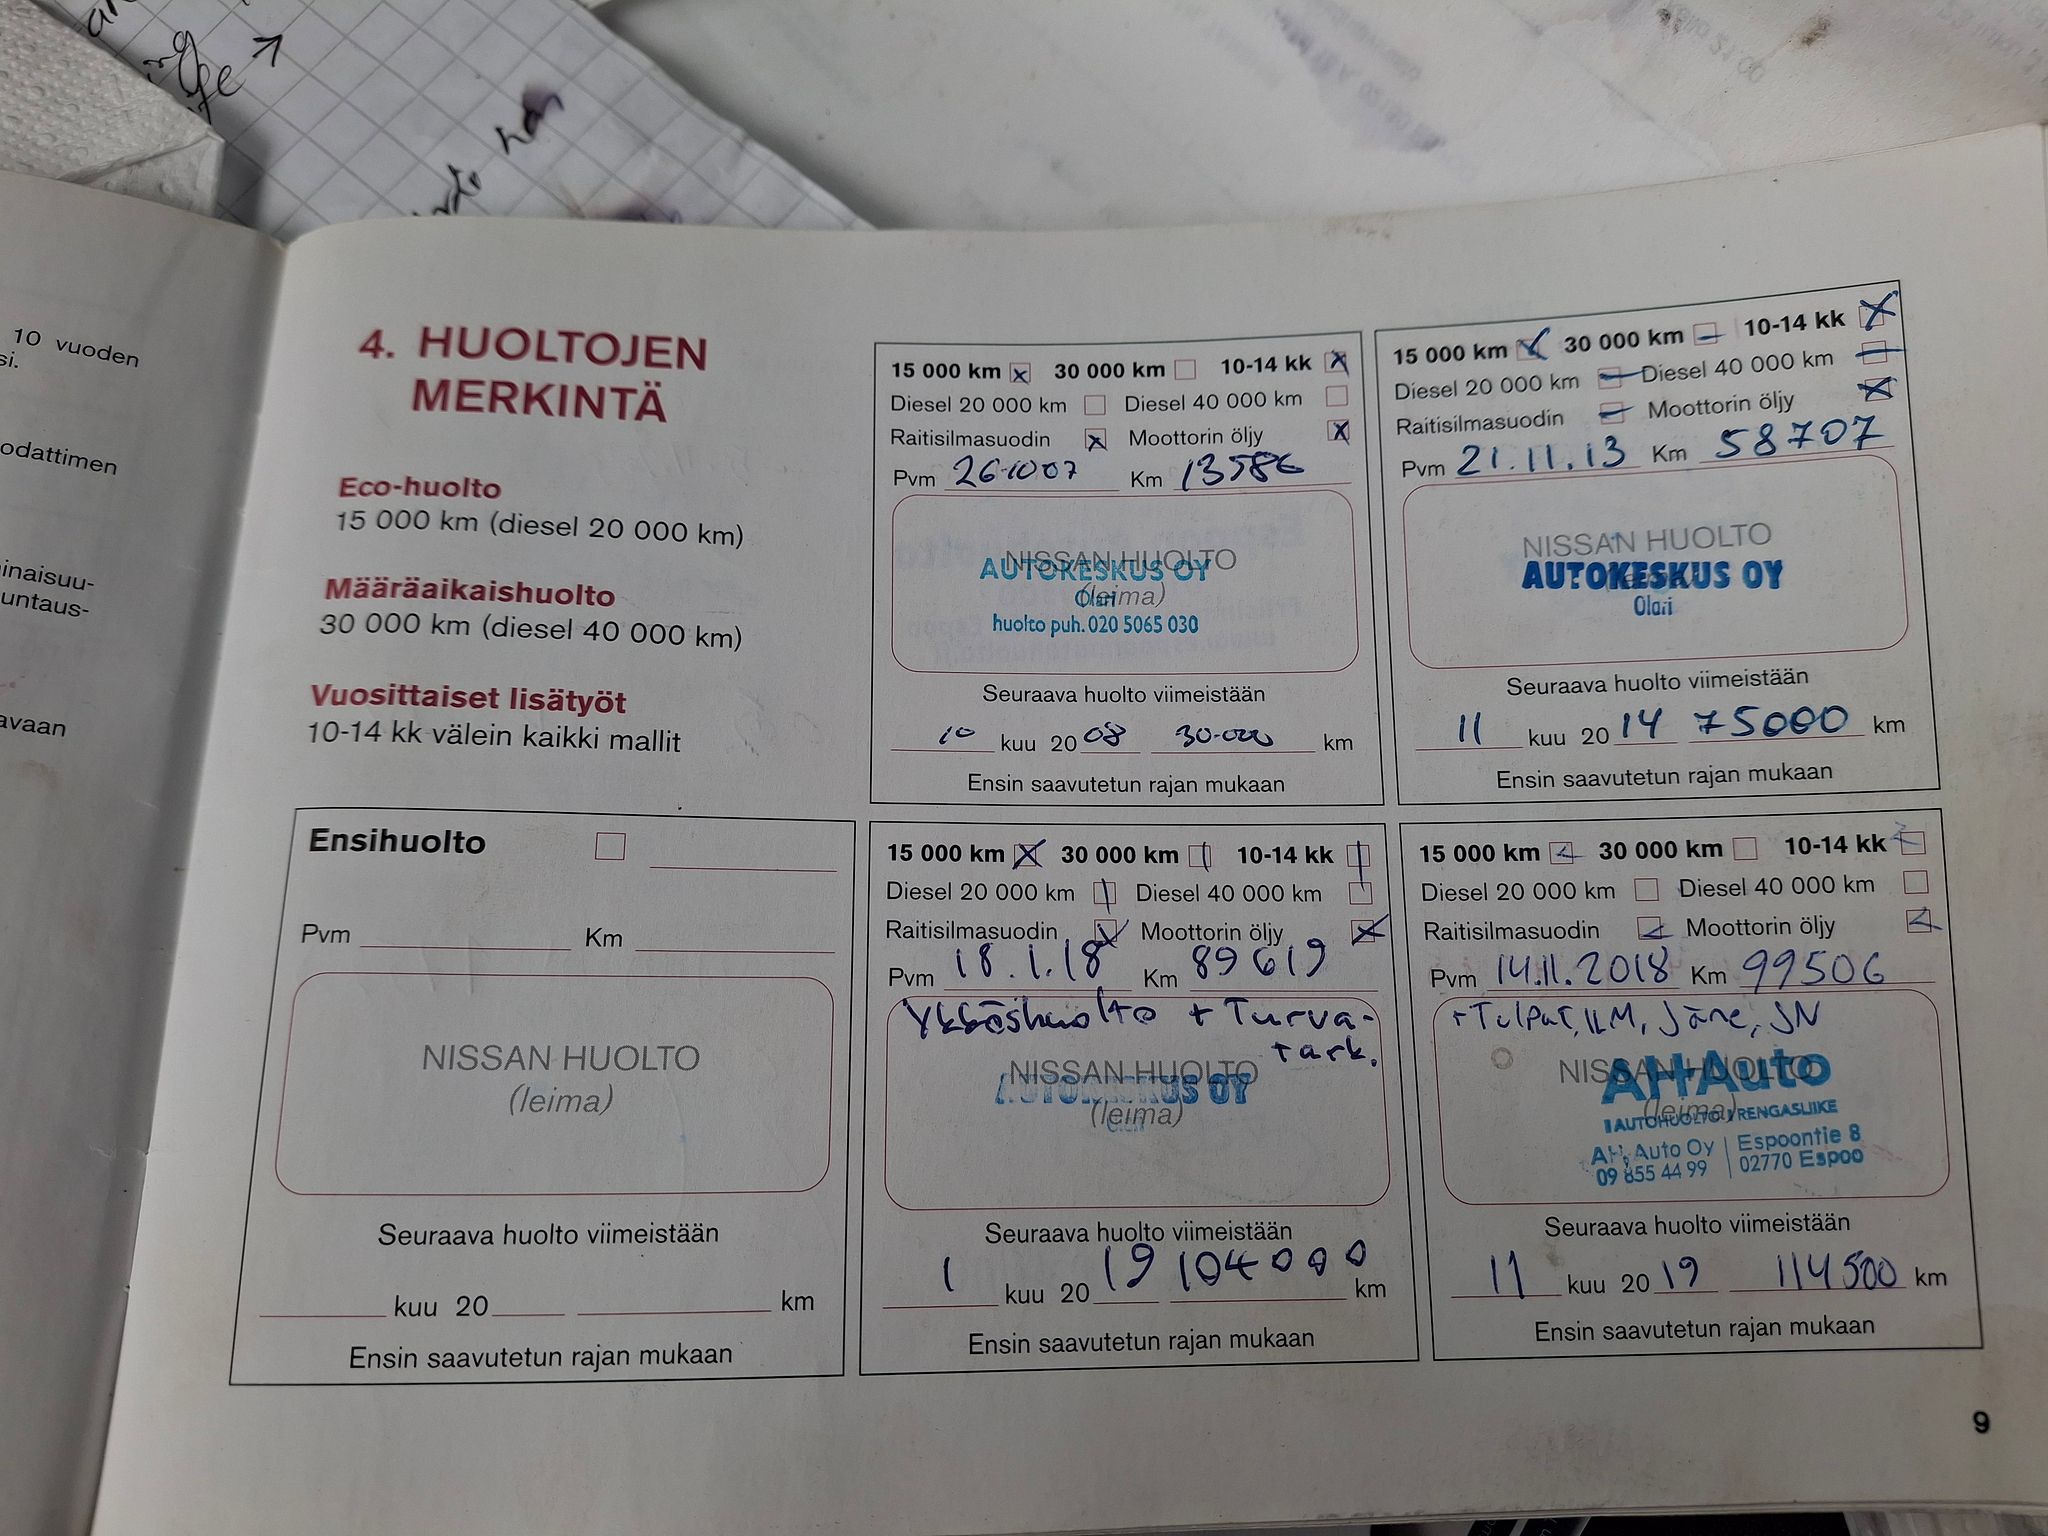 10 vuoden
si.
odattimen
inaisuu-
untaus-
avaan
4. HUOLTOJEN
MERKINTÄ
Eco-huolto
15 000 km (diesel 20 000 km)
Määräaikaishuolto
30 000 km (diesel 40 000 km)
Vuosittaiset lisätyöt
10-14 kk välein kaikki mallit
15 000 km 30 000 km 10-14 kk
Diesel 20 000 km Diesel 40 000 km
Raitisilmasuodin Moottorin öljy
Pvm 26.10.07 Km 13586
NISSAN HUOLTO
(leima)
AUTOKESKUS OY
Olari
huolto puh. 020 5065 030
Seuraava huolto viimeistään
10 kuu 20 08 30.000 km
Ensin saavutetun rajan mukaan
15 000 km 30 000 km 10-14 kk
Diesel 20 000 km Diesel 40 000 km
Raitisilmasuodin Moottorin öljy
Pvm 21.11.13 Km 58707
NISSAN HUOLTO
AUTOKESKUS OY
Olari
Seuraava huolto viimeistään
11 kuu 20 14 75000 km
Ensin saavutetun rajan mukaan
Ensihuolto
Pvm Km
NISSAN HUOLTO
(leima)
Seuraava huolto viimeistään
kuu 20 km
Ensin saavutetun rajan mukaan
15 000 km 30 000 km 10-14 kk
Diesel 20 000 km Diesel 40 000 km
Raitisilmasuodin Moottorin öljy
Pvm 18.1.18 Km 89619
Ykköshuolto + Turva-
tark.
NISSAN HUOLTO
(leima)
AUTOKESKUS OY
Olari
Seuraava huolto viimeistään
1 kuu 20 19 104000 km
Ensin saavutetun rajan mukaan
15 000 km 30 000 km 10-14 kk
Diesel 20 000 km Diesel 40 000 km
Raitisilmasuodin Moottorin öljy
Pvm 14.11.2018 Km 99506
+Tulpat, ILM, Jäne, JN
NISSAN HUOLTO
(leima)
AH Auto
AUTOHUOLTO RENGASLIIKE
AH. Auto Oy Espoontie 8
09 855 44 99 02770 Espoo
Seuraava huolto viimeistään
11 kuu 20 19 114500 km
Ensin saavutetun rajan mukaan
9